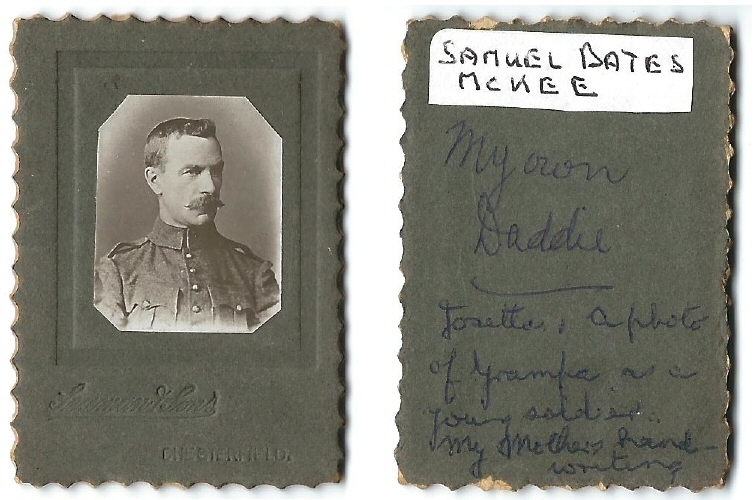 & Sons
CHESTERFIELD.
SAMUEL BATES
MCKEE
My own
Daddie
Josetta, a photo
of Grampa as a
young soldier.
My Mothers hand-
writing